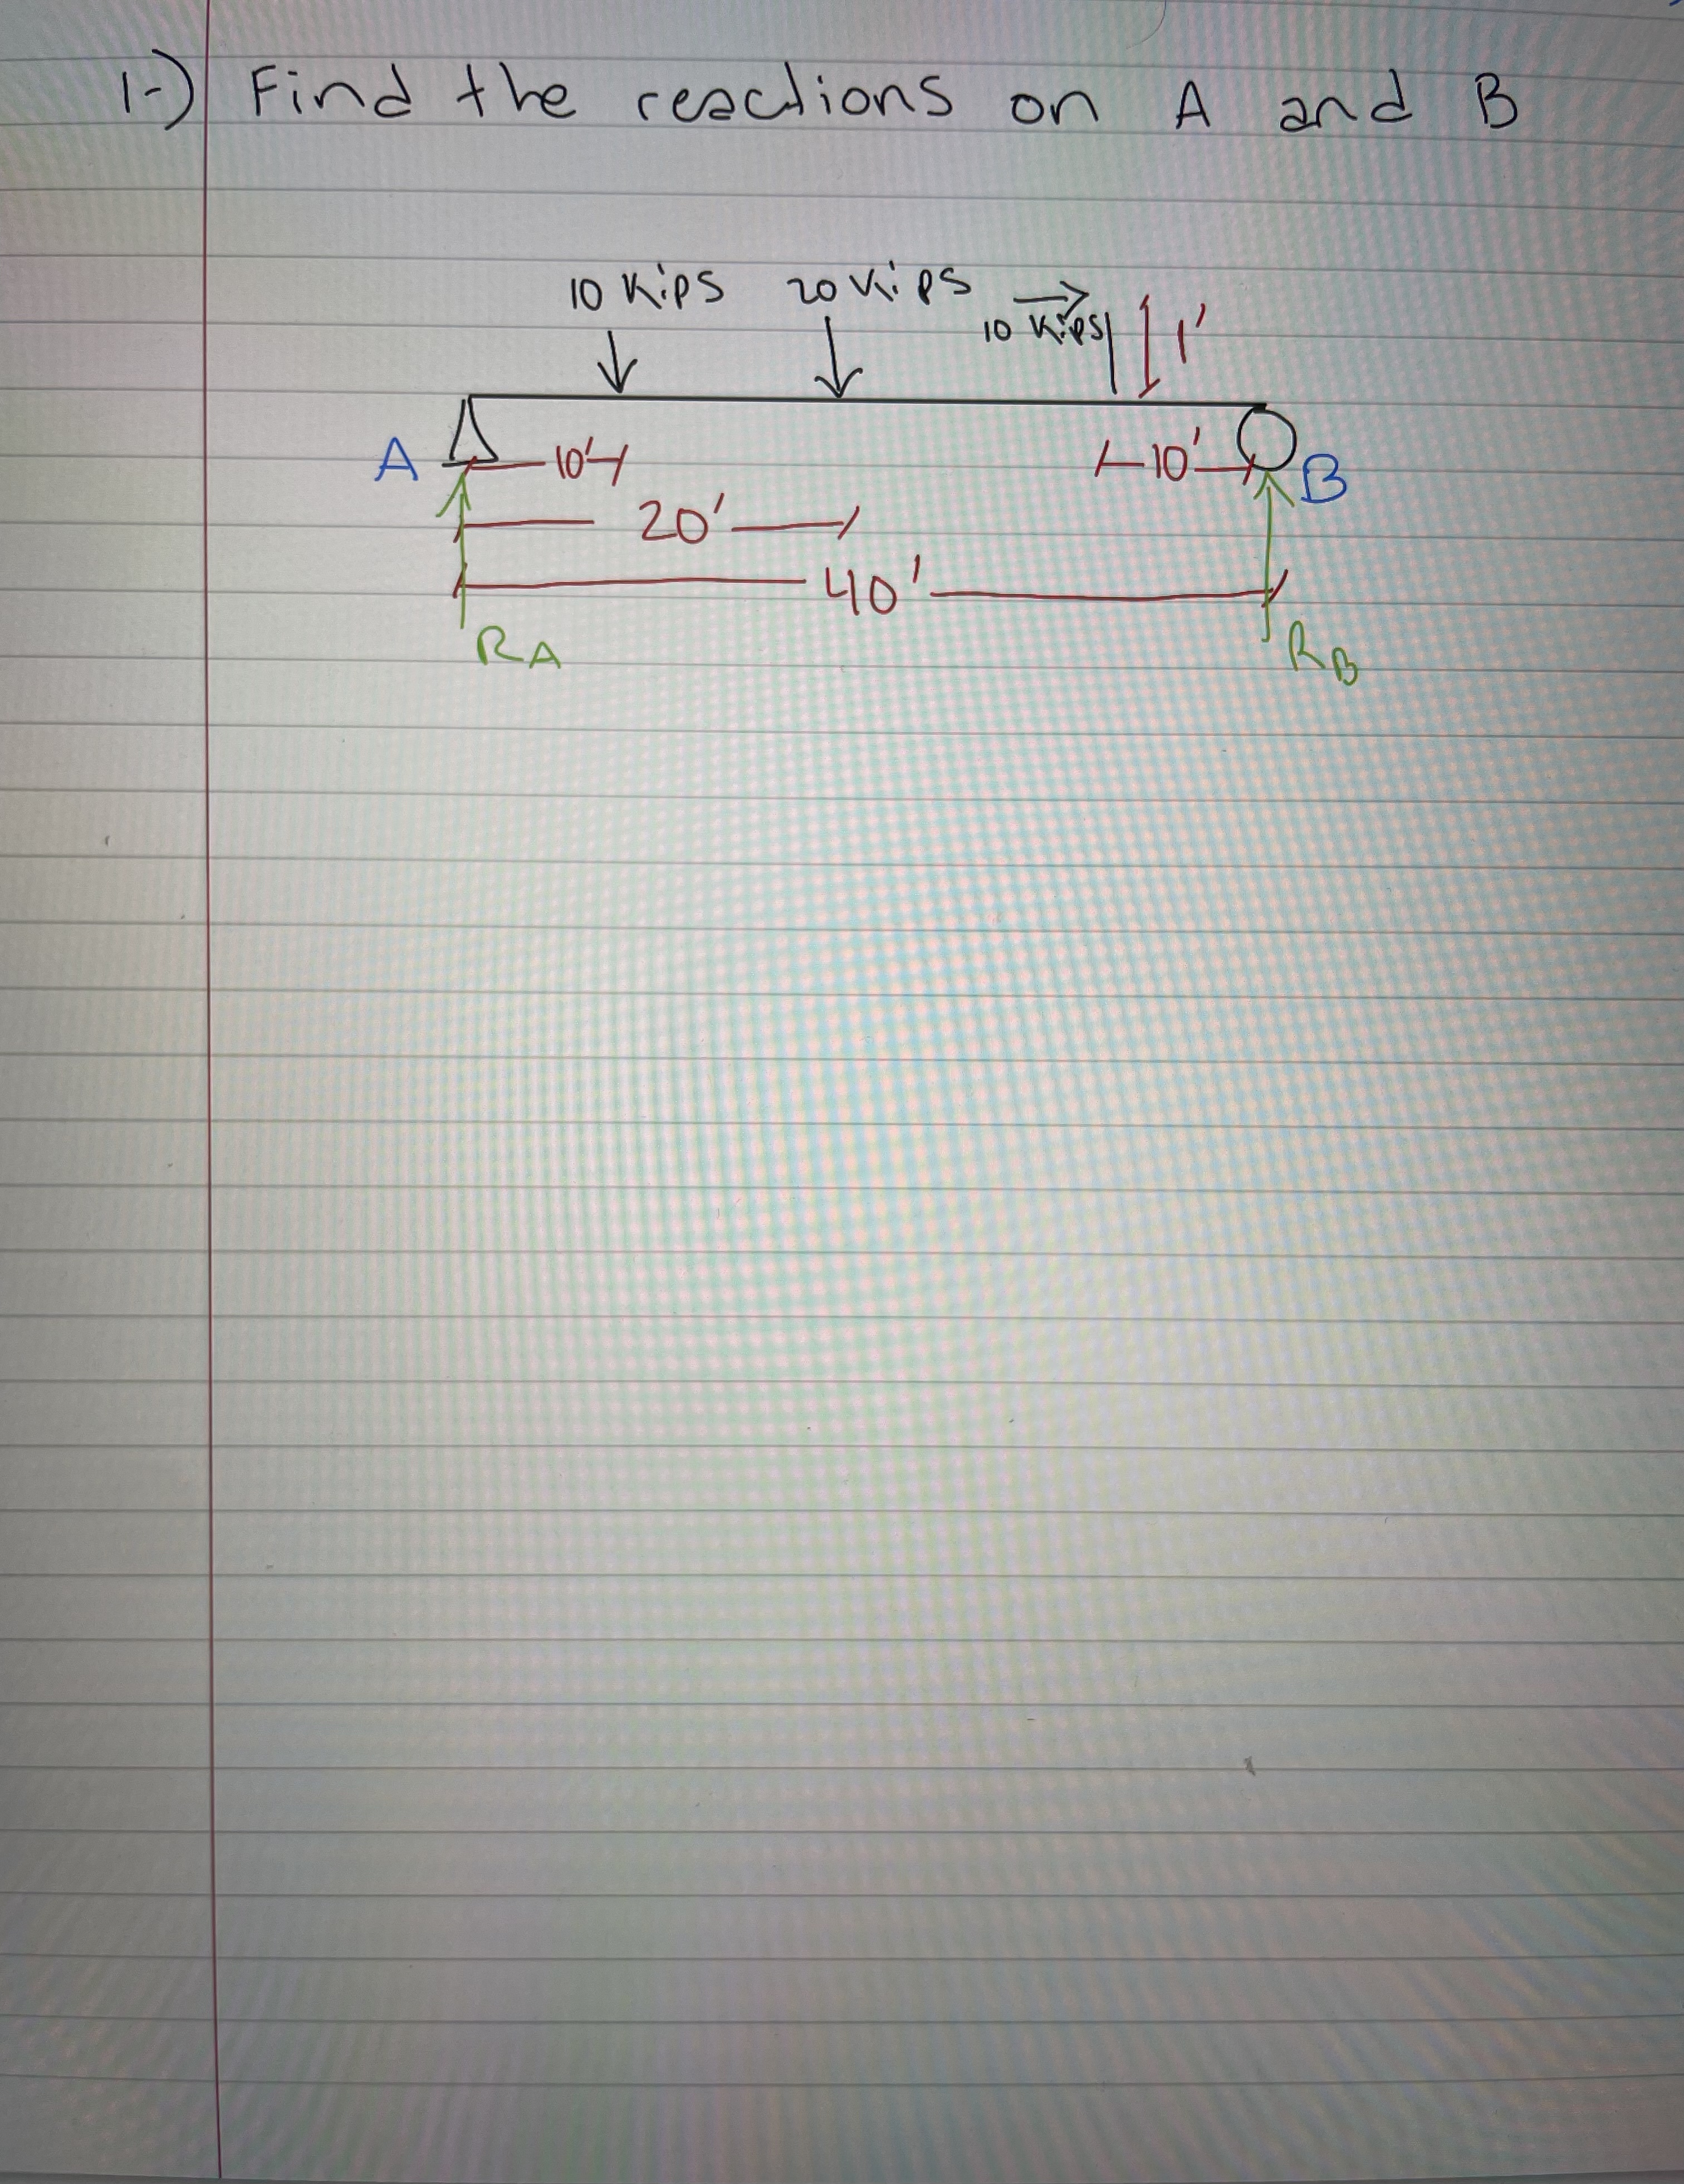 1-) Find the reactions on A and B
10 Kips 20 Kips 10 Kips 1'
A 10' 10' B
20'
40'
RA RB